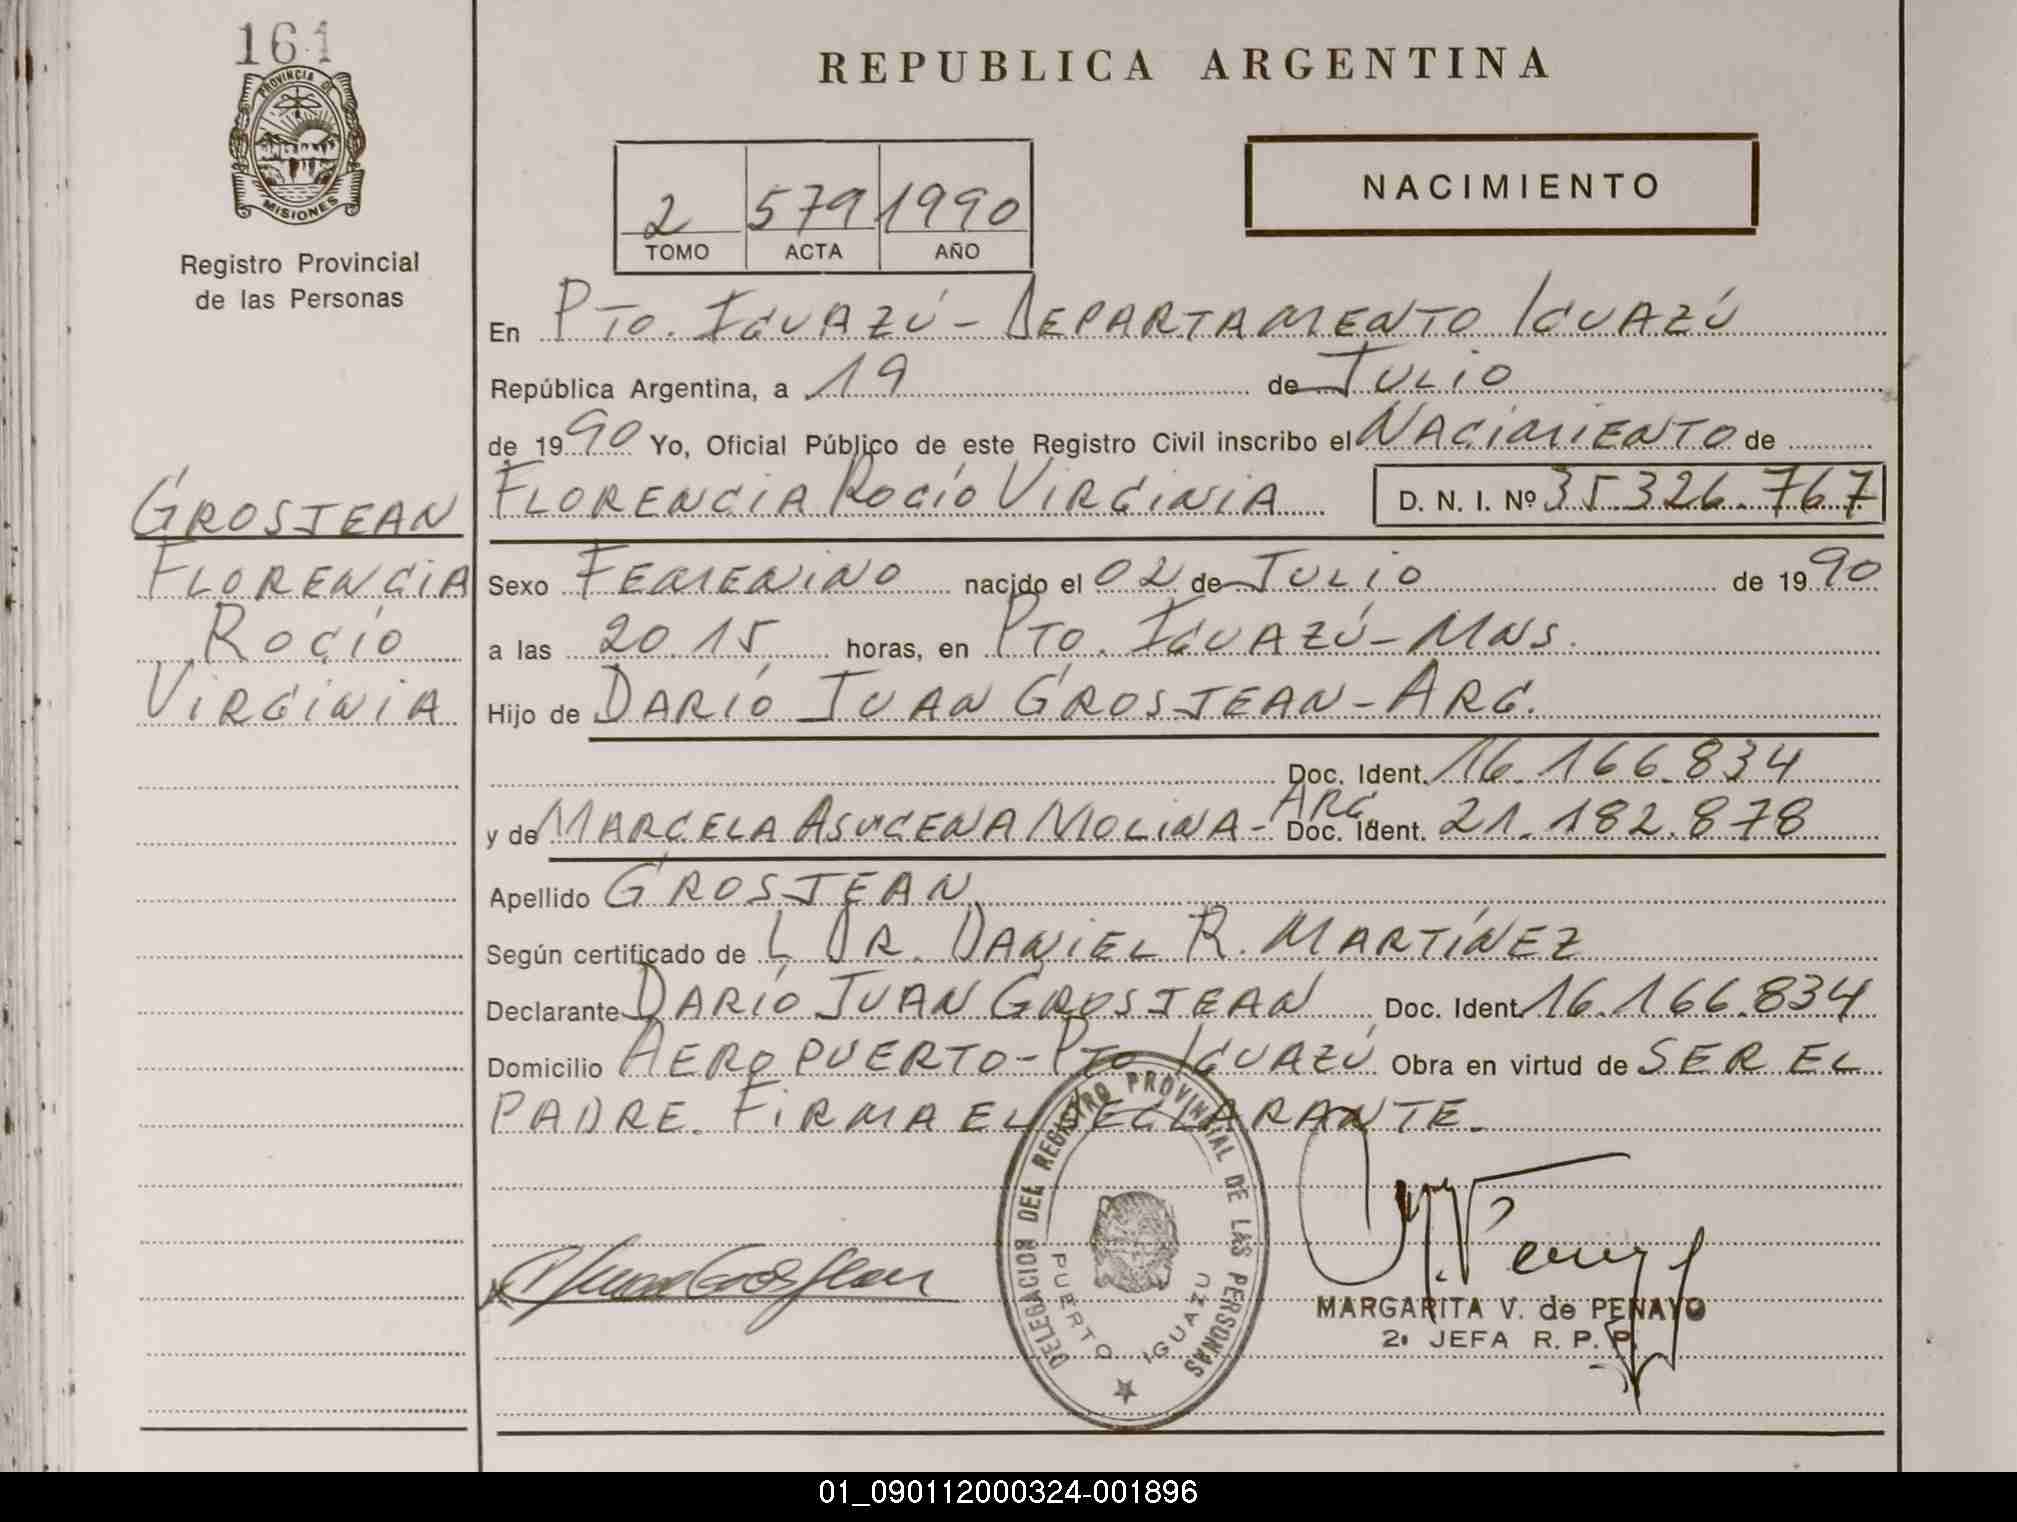 161
PROVINCIA DE
MISIONES
Registro Provincial
de las Personas
GROSJEAN
FLORENCIA
ROCÍO
VIRGINIA
REPUBLICA ARGENTINA
2 579 1990
TOMO ACTA AÑO
NACIMIENTO
En PTO. IGUAZÚ - DEPARTAMENTO IGUAZÚ
República Argentina, a 19 de JULIO
de 1990 Yo, Oficial Público de este Registro Civil inscribo el NACIMIENTO de
FLORENCIA ROCÍO VIRGINIA D. N. I. Nº 35.326.767
Sexo FEMENINO nacido el 02 de JULIO de 1990
a las 20.15 horas, en PTO. IGUAZÚ - MNS.
Hijo de DARÍO JUAN GROSJEAN - ARG.
Doc. Ident. 16.166.834
y de MARCELA ASUCENA MOLINA - ARG. Doc. Ident. 21.182.878
Apellido GROSJEAN
Según certificado de L DR. DANIEL R. MARTÍNEZ
Declarante DARÍO JUAN GROSJEAN Doc. Ident. 16.166.834
Domicilio AEROPUERTO - PTO IGUAZÚ Obra en virtud de SER EL
PADRE. FIRMA EL DECLARANTE.
DELEGACION DEL REGISTRO PROVINCIAL DE LAS PERSONAS
PUERTO IGUAZU
MARGARITA V. de PENAYO
2º JEFA R. P. P.
01_090112000324-001896